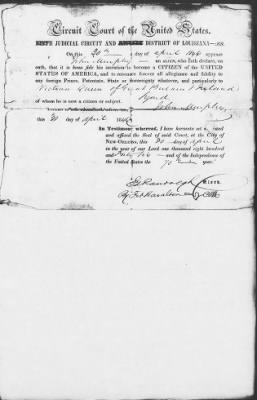 Circuit Court of the United States.
JUDICIAL CIRCUIT AND DISTRICT OF LOUISIANA—SS.
On this 20th day of April 1846 appears
John Murphy an ALIEN, who doth declare, on
oath, that it is bona fide his intention to become a CITIZEN of the UNITED
STATES OF AMERICA, and to renounce forever all allegiance and fidelity to
any foreign Prince, Potentate, State or Sovereignty whatever, and particularly to
Victoria Queen of Great Britain & Ireland
of whom he is now a citizen or subject.
Signed
John Murphy
this 20 day of April 1846
In Testimony whereof, I have hereunto set my hand
and affixed the Seal of said Court, at the City of
NEW-ORLEANS, this 20 day of April
in the year of our Lord one thousand eight hundred
and Forty Six and of the Independence of
the United States the 70 year.
Clerk
By